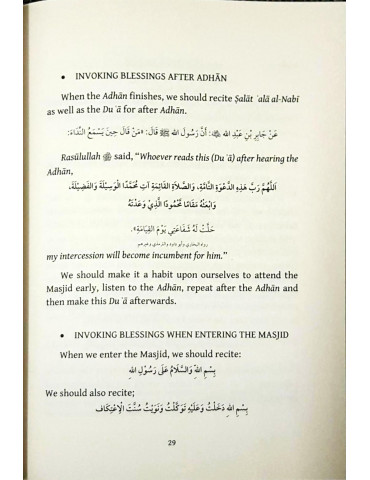 • INVOKING BLESSINGS AFTER ADHĀN
When the Adhān finishes, we should recite Ṣalāt ʿalā al-Nabī
as well as the Duʿā for after Adhān.
عَنْ جَابِرِ بْنِ عَبْدِ اللهِ ؓ: أَنَّ رَسُولَ اللهِ ﷺ قَالَ: «مَنْ قَالَ حِينَ يَسْمَعُ النِّدَاءَ:
Rasūlullah ﷺ said, “Whoever reads this (Duʿā) after hearing the
Adhān,
اَللّٰهُمَّ رَبَّ هٰذِهِ الدَّعْوَةِ التَّامَّةِ، وَالصَّلَاةِ الْقَائِمَةِ آتِ مُحَمَّدًا الْوَسِيْلَةَ وَالْفَضِيْلَةَ،
وَابْعَثْهُ مَقَامًا مَّحْمُودًا الَّذِيْ وَعَدْتَهُ
حَلَّتْ لَهُ شَفَاعَتِي يَوْمَ الْقِيَامَةِ».
رواه البخاري وأبو داود والترمذي وغيرهم
my intercession will become incumbent for him.”
We should make it a habit upon ourselves to attend the
Masjid early, listen to the Adhān, repeat after the Adhān and
then make this Duʿā afterwards.
• INVOKING BLESSINGS WHEN ENTERING THE MASJID
When we enter the Masjid, we should recite:
بِسْمِ اللهِ وَالسَّلَامُ عَلَى رَسُوْلِ اللهِ
We should also recite;
بِسْمِ اللهِ دَخَلْتُ وَعَلَيْهِ تَوَكَّلْتُ وَنَوَيْتُ سُنَّتَ الْاِعْتِكَاف
29